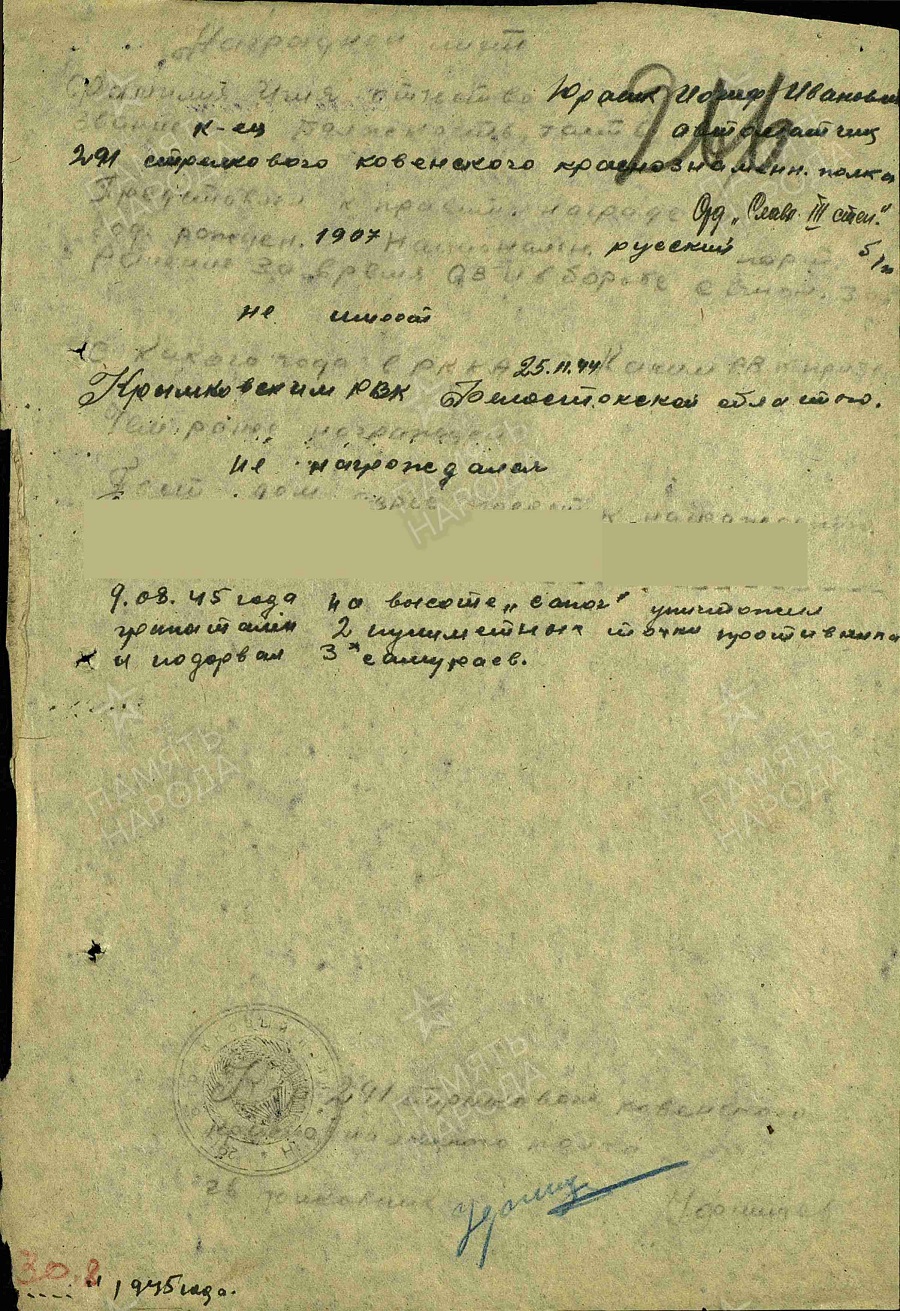 Наградной лист
Фамилия Имя отчество Юрасик Иосиф Иванович
266
звание к-ец должность автоматчик
291 стрелкового ковенского краснознаменн. полка
Представлен к правит. награде Орд. „Слав. III степ."
год рожден. 1907 Национальн. русский парт. б/п
Ранение за время ОВ и в борьбе с
не имеет
С какого года в РККА 25.11.44 Каким РВК призван
Крынковским РВК Белостокской областью.
Чем ранее награжден
не награждался
9.08.45 года на высоте „Сапог" уничтожил
гранатами 2 пулеметных точки противника
и подорвал 3х самураев.
291 стрелкового ковенского
краснознаменного полка
подполковник
30.8
" 1945 года.
ПАМЯТЬ
НАРОДА
ПАМЯТЬ
НАРОДА
ПАМЯТЬ
НАРОДА
ПАМЯТЬ
НАРОДА
ПАМЯТЬ
НАРОДА
ПАМЯТЬ
НАРОДА